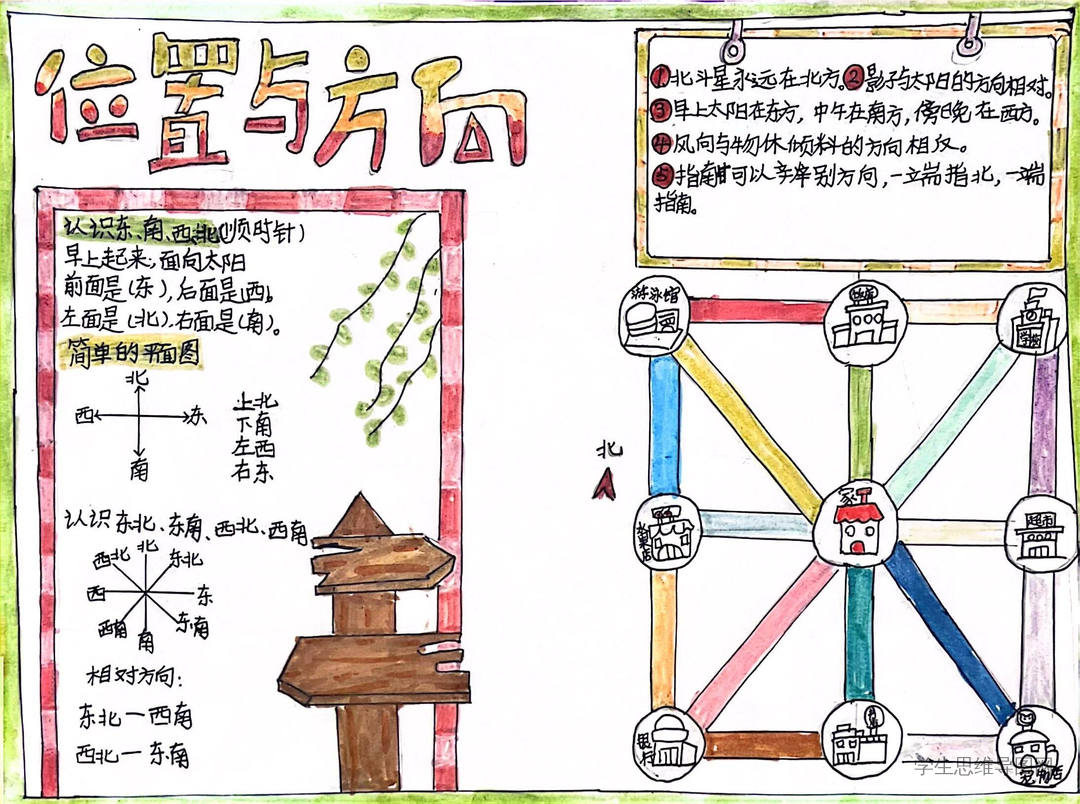 位置与方向
认识东、南、西、北(顺时针)
早上起来,面向太阳
前面是(东),后面是(西),
左面是(北),右面是(南)。
简单的平面图
北
西 东
南
上北
下南
左西
右东
认识东北、东南、西北、西南
西北 北 东北
西 东
西南 南 东南
相对方向:
东北一西南
西北一东南
①北斗星永远在北方。②影子与太阳的方向相对。
③早上太阳在东方,中午在南方,傍晚在西方。
④风向与物体倾斜的方向相反。
⑤指南针可以辨别方向,一端指北,一端
指南。
北
游泳馆
学校
家
超市
银行
宠物店
学生思维导图网